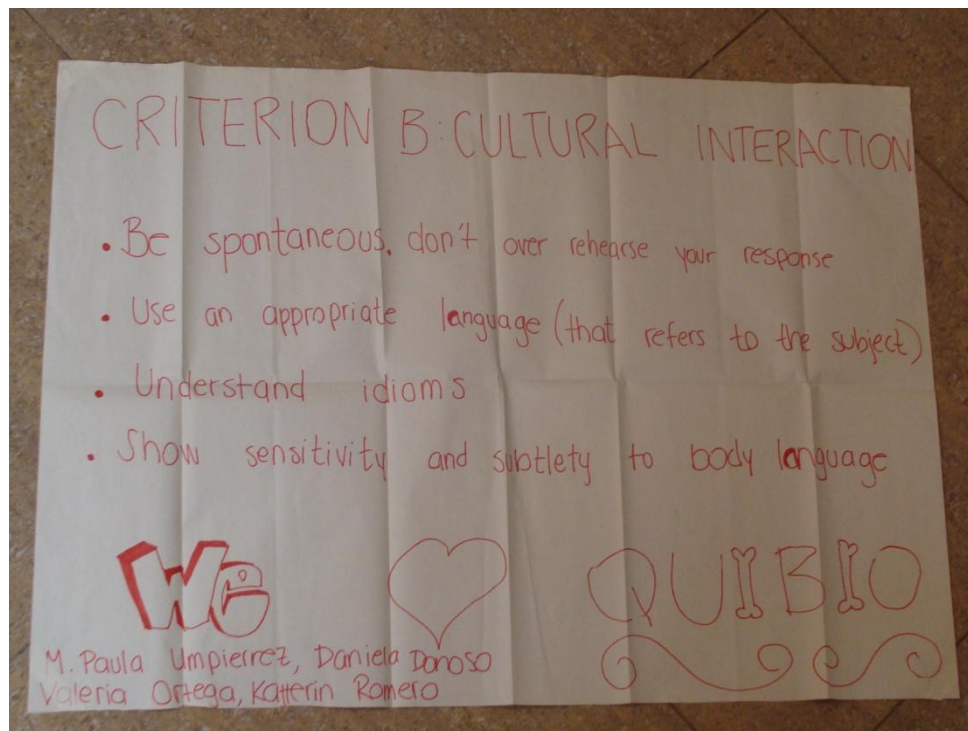 CRITERION B: CULTURAL INTERACTION
• Be spontaneous, don't over rehearse your response
• Use an appropriate language (that refers to the subject)
• Understand idioms
• Show sensitivity and subtlety to body language
We ♡ QUIBIO
M. Paula Umpierrez, Daniela Donoso
Valeria Ortega, Katterin Romero